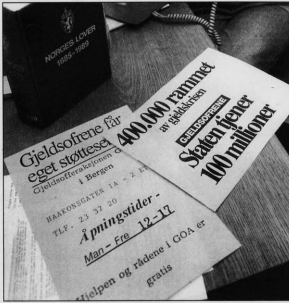 NORGES LOVER
1685-1989
Gjeldsofrene får
eget støttese
Gjeldsofferaksjonen
i Bergen
HAAKONSGATEN 1A - 2 E
TLF. 23 32 20
Åpningstider -
Man - Fre 12-17
Hjelpen og rådene i GOA er
gratis
400.000 rammet
av gjeldskrisen
GJELDSOFRENE
Staten tjener
100 millioner